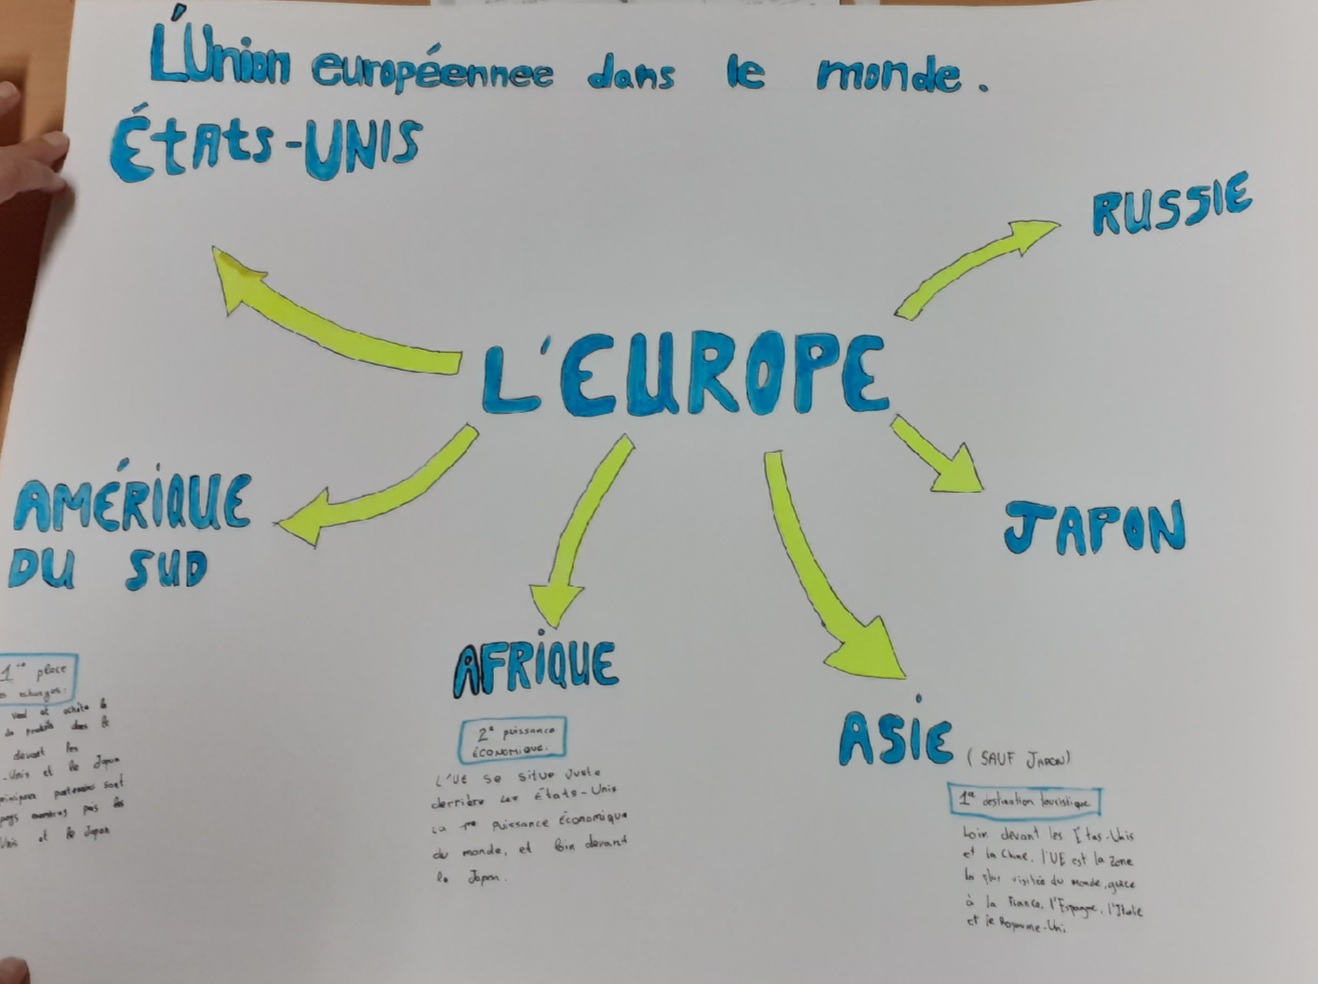 L'Union européennee dans le monde.
ÉtAts-UNIS
RUSSIE
L'EUROPE
AMÉRIQUE
DU SUD
JAPON
AFRIQUE
ASIE (SAUF JAPON)
1re place
échanges:
vend et achète
de produits dans le
devant les
-Unis et le Japon
partenaires sont
pays membres puis les
Unis et le Japon
2e puissance
ÉCONOMIQUE.
L'UE se situe juste
derrière les États-Unis
La 1re Puissance Économique
du monde, et loin devant
le Japon.
1re destination touristique
Loin devant les Étas-Unis
et la Chine, l'UE est la zone
la plus visitée du monde, grâce
à la France, l'Espagne, l'Italie
et le Royaume-Uni